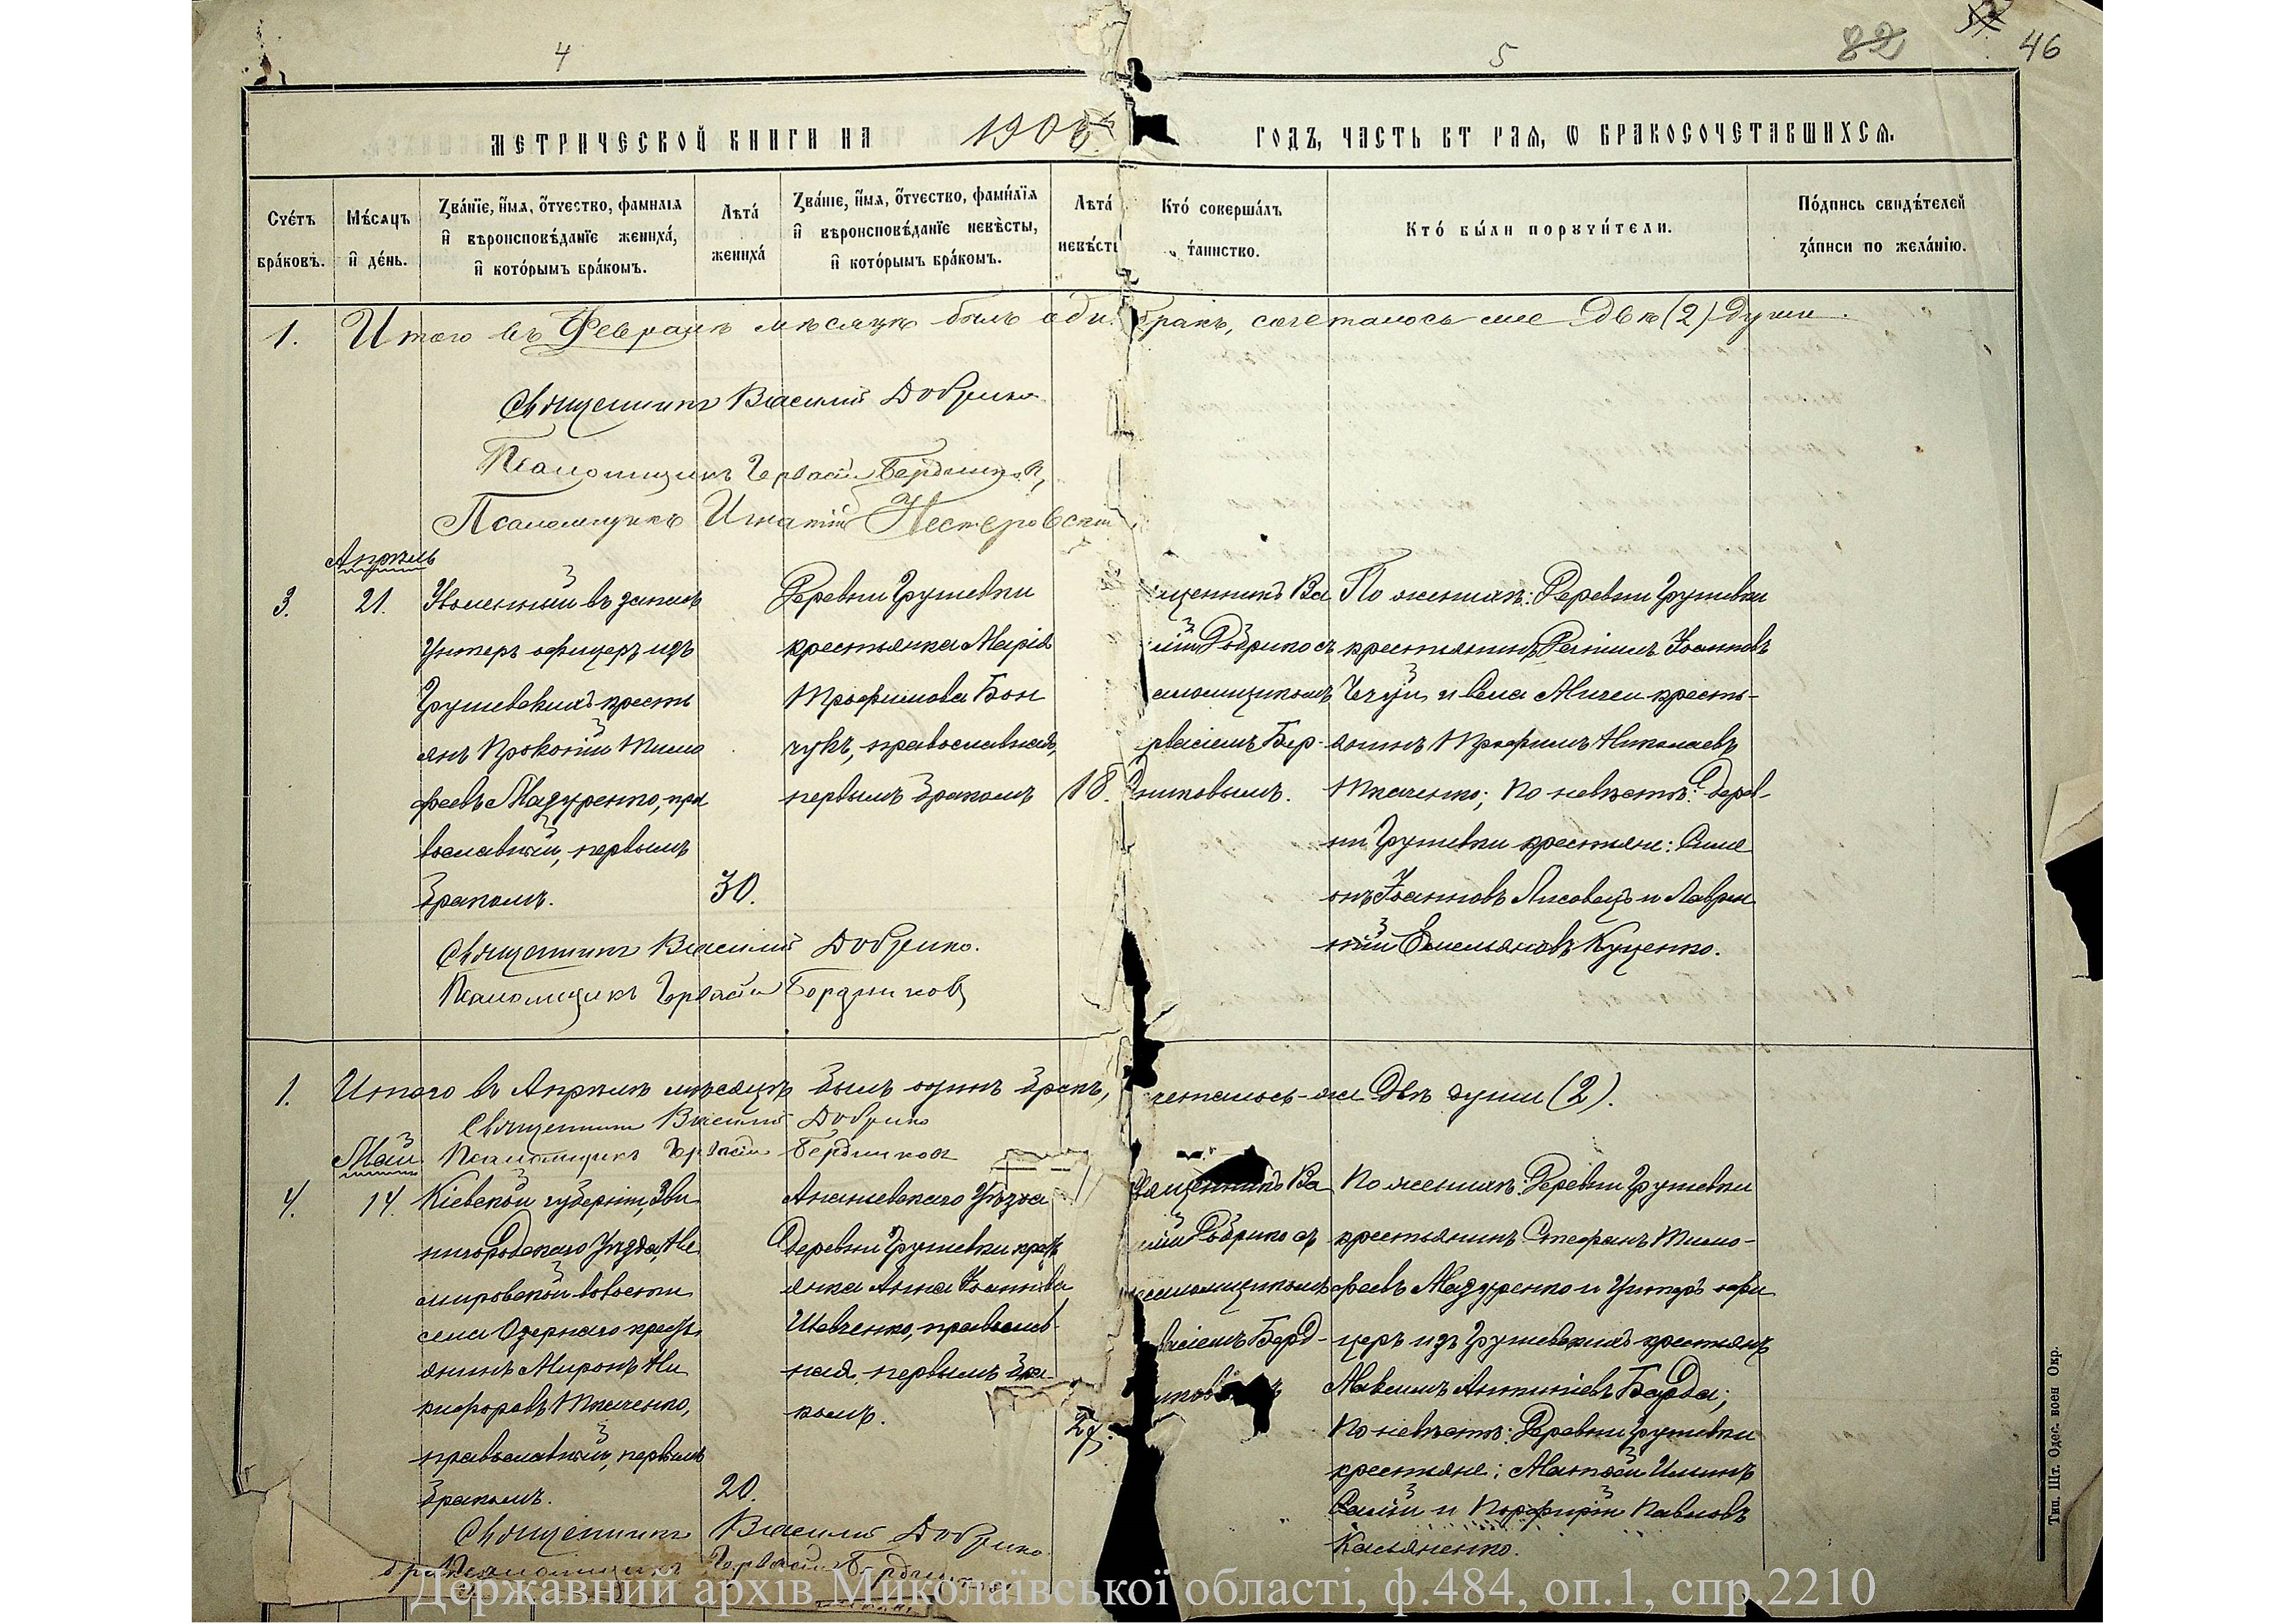 4
5
82
46
МЕТРИЧЕСКОЙ КНИГИ НА 190 ГОДЪ, ЧАСТЬ ВТ РАЯ, Ѡ БРАКОСОЧЕТАВШИХСЯ.
Счетъ браковъ.
Мѣсяцъ и день.
Званіе, имя, отчество, фамилія и вѣроисповѣданіе жениха, и которымъ бракомъ.
Лѣта жениха
Званіе, имя, отчество, фамилія и вѣроисповѣданіе невѣсты, и которымъ бракомъ.
Лѣта невѣст
Кто совершалъ таинство.
Кто были поручители.
Подпись свидѣтелей записи по желанію.
1. Итого въ Февралѣ мѣсяцѣ былъ оди бракъ, сочеталось же двѣ (2) души.
Священникъ Василій Добрико
Псаломщикъ Гервасій Бердников
Псаломщикъ Игнатій Нестеровскій
Апрѣль
3.
21.
Уволенный въ запасъ
Унтеръ офицеръ изъ
Грушевскихъ кресть
янъ Прокопій Тимо
феевъ Мазуренко, пра
вославный, первымъ
бракомъ.
30.
Деревни Грушевки
крестьянка Марія
Трофимова Бон
чукъ, православная,
первымъ бракомъ
18.
щенникъ Ва
ілій Добрико съ
аломщикомъ
рвасіемъ Бер-
дниковымъ.
По женихѣ: Деревни Грушевки
крестьянинъ Даніилъ Іоанновъ
и села Мигеи кресть-
янинъ Трофимъ Николаевъ
Ткаченко; по невѣстѣ: дерев-
ни Грушевки крестьяне: Симе
онъ Іоанновъ Лисовецъ и Лаврен
тій Емельяновъ Куценко.
Священникъ Василій Добрико.
Псаломщикъ Гервасій Бердников
1. Итого въ Апрѣлѣ мѣсяцѣ былъ одинъ бракъ, четалось-же двѣ души (2).
Священникъ Василій Добрико
Май
Псаломщикъ Гервасій Бердников
4.
14.
Кіевской губерніи, Зве
нигородскаго Уѣзда, Не
мировской волости
села Озернаго крест
янинъ Миронъ Ни
кифоровъ Ткаченко,
православный, первымъ
бракомъ.
20.
Ананьевскаго Уѣзда
деревни Грушевки крест
янка Анна Іоаннова
Шевченко, православ-
ная, первымъ бра-
комъ.
27.
Священникъ Ва
илій Добрико съ
псаломщикомъ
васіемъ Берд-
ников
По женихѣ: Деревни Грушевки
крестьянинъ Стефанъ Тимо-
феевъ Мазуренко и Унтеръ офи
церъ изъ Грушевскихъ крестьянъ
Максимъ Антоніевъ Барда;
По невѣстѣ: Деревни Грушевки
крестьяне: Матѳей Ильинъ
и Порфирій Павловъ
Касьяненко.
Священникъ Василій Добрико
Псаломщикъ Гервасій
Тип. Шт. Одес. воен Окр.
Державний архів Миколаївської області, ф.484, оп.1, спр.2210